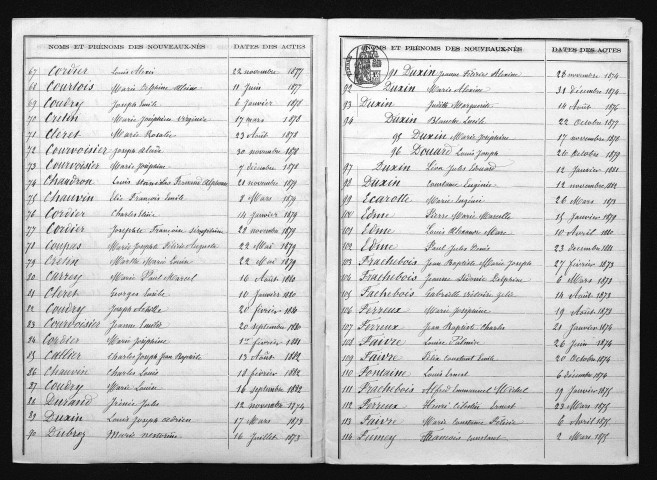 NOMS ET PRÉNOMS DES NOUVEAUX-NÉS DATES DES ACTES
67 Cordier Louis Alexis 22 novembre 1877
68 Courtois Marie Delphine 11 Juin 1877
69 Coudry Joseph Emile 6 Janvier 1878
70 Cretin Marie Joséphine Virginie 17 mars 1878
71 Cleret Marie Rosalie 23 Août 1878
72 Courvoisier Joseph 30 novembre 1878
73 Courvoisier Marie Joséphine 7 décembre 1878
74 Chaudron Louis Stanislas Fernand Alphonse 21 novembre 1879
75 Chauvin Elie François Emile 2 Mars 1879
76 Cordier Charles 14 Janvier 1879
77 Cordier Josephte Françoise Séraphine 29 novembre 1879
78 Coupas Marie Joseph Auguste 22 Mai 1879
79 Cretin Marthe Marie Louisa 22 Mai 1879
80 Marie Paul Marcel 16 Août 1880
81 Cleret Georges Emile 10 Janvier 1880
82 Coudry Joseph 20 février 1880
83 Courvoisier Jeanne 20 septembre 1880
84 Cordier Marie Joséphine 1er février 1881
85 Callier Charles Joseph Jean Baptiste 13 Août 1882
86 Chauvin Charles Louis 18 février 1882
87 Coudry Marie Louise 14 septembre 1882
88 Durand Jules 12 novembre 1874
89 Duxin Louis Joseph 17 Mars 1873
90 Dubroz Marie 16 Juillet 1873
NOMS ET PRÉNOMS DES NOUVEAUX-NÉS DATES DES ACTES
91 Duxin Jeanne 28 novembre 1874
92 Duxin Marie 31 Décembre 1874
93 Duxin Judith Marguerite 14 Août 1876
94 Duxin Blanche Lucile 22 Octobre 1877
95 Duxin Marie Joséphine 17 novembre 1878
96 Douard Louis Joseph 26 Octobre 1879
97 Duxin Léon Jules Edouard 12 Janvier 1881
98 Duxin Constance Eugénie 12 novembre 1882
99 Ecarotte Marie Eugénie 26 Mars 1873
100 Edme Pierre Marie Marcelle 15 Janvier 1879
101 Edme Louis Alexandre Marc 10 Avril 1881
102 Edme Paul Jules Denis 23 décembre 1881
103 Frachebois Jean Baptiste Marie Joseph 27 février 1873
104 Frachebois Jeanne Sidonie Delphine 6 Mars 1873
105 Fachebois Gabrielle Victoire 14 Août 1873
106 Ferreux Marie Joséphine 19 Août 1873
107 Férreux Jean Baptiste Charles 21 Janvier 1874
108 Faivre Louise 26 Juin 1874
109 Faivre Félix Constant Emile 20 Octobre 1874
110 Fontaine Louis Ernest 6 décembre 1874
111 Frachebois Alfred Emmanuel Michel 19 Janvier 1875
112 Férreux Henri Célestin Ernest 23 Mars 1875
113 Faivre Marie Constance 6 Avril 1875
114 Fumey François Constant 2 Mars 1875